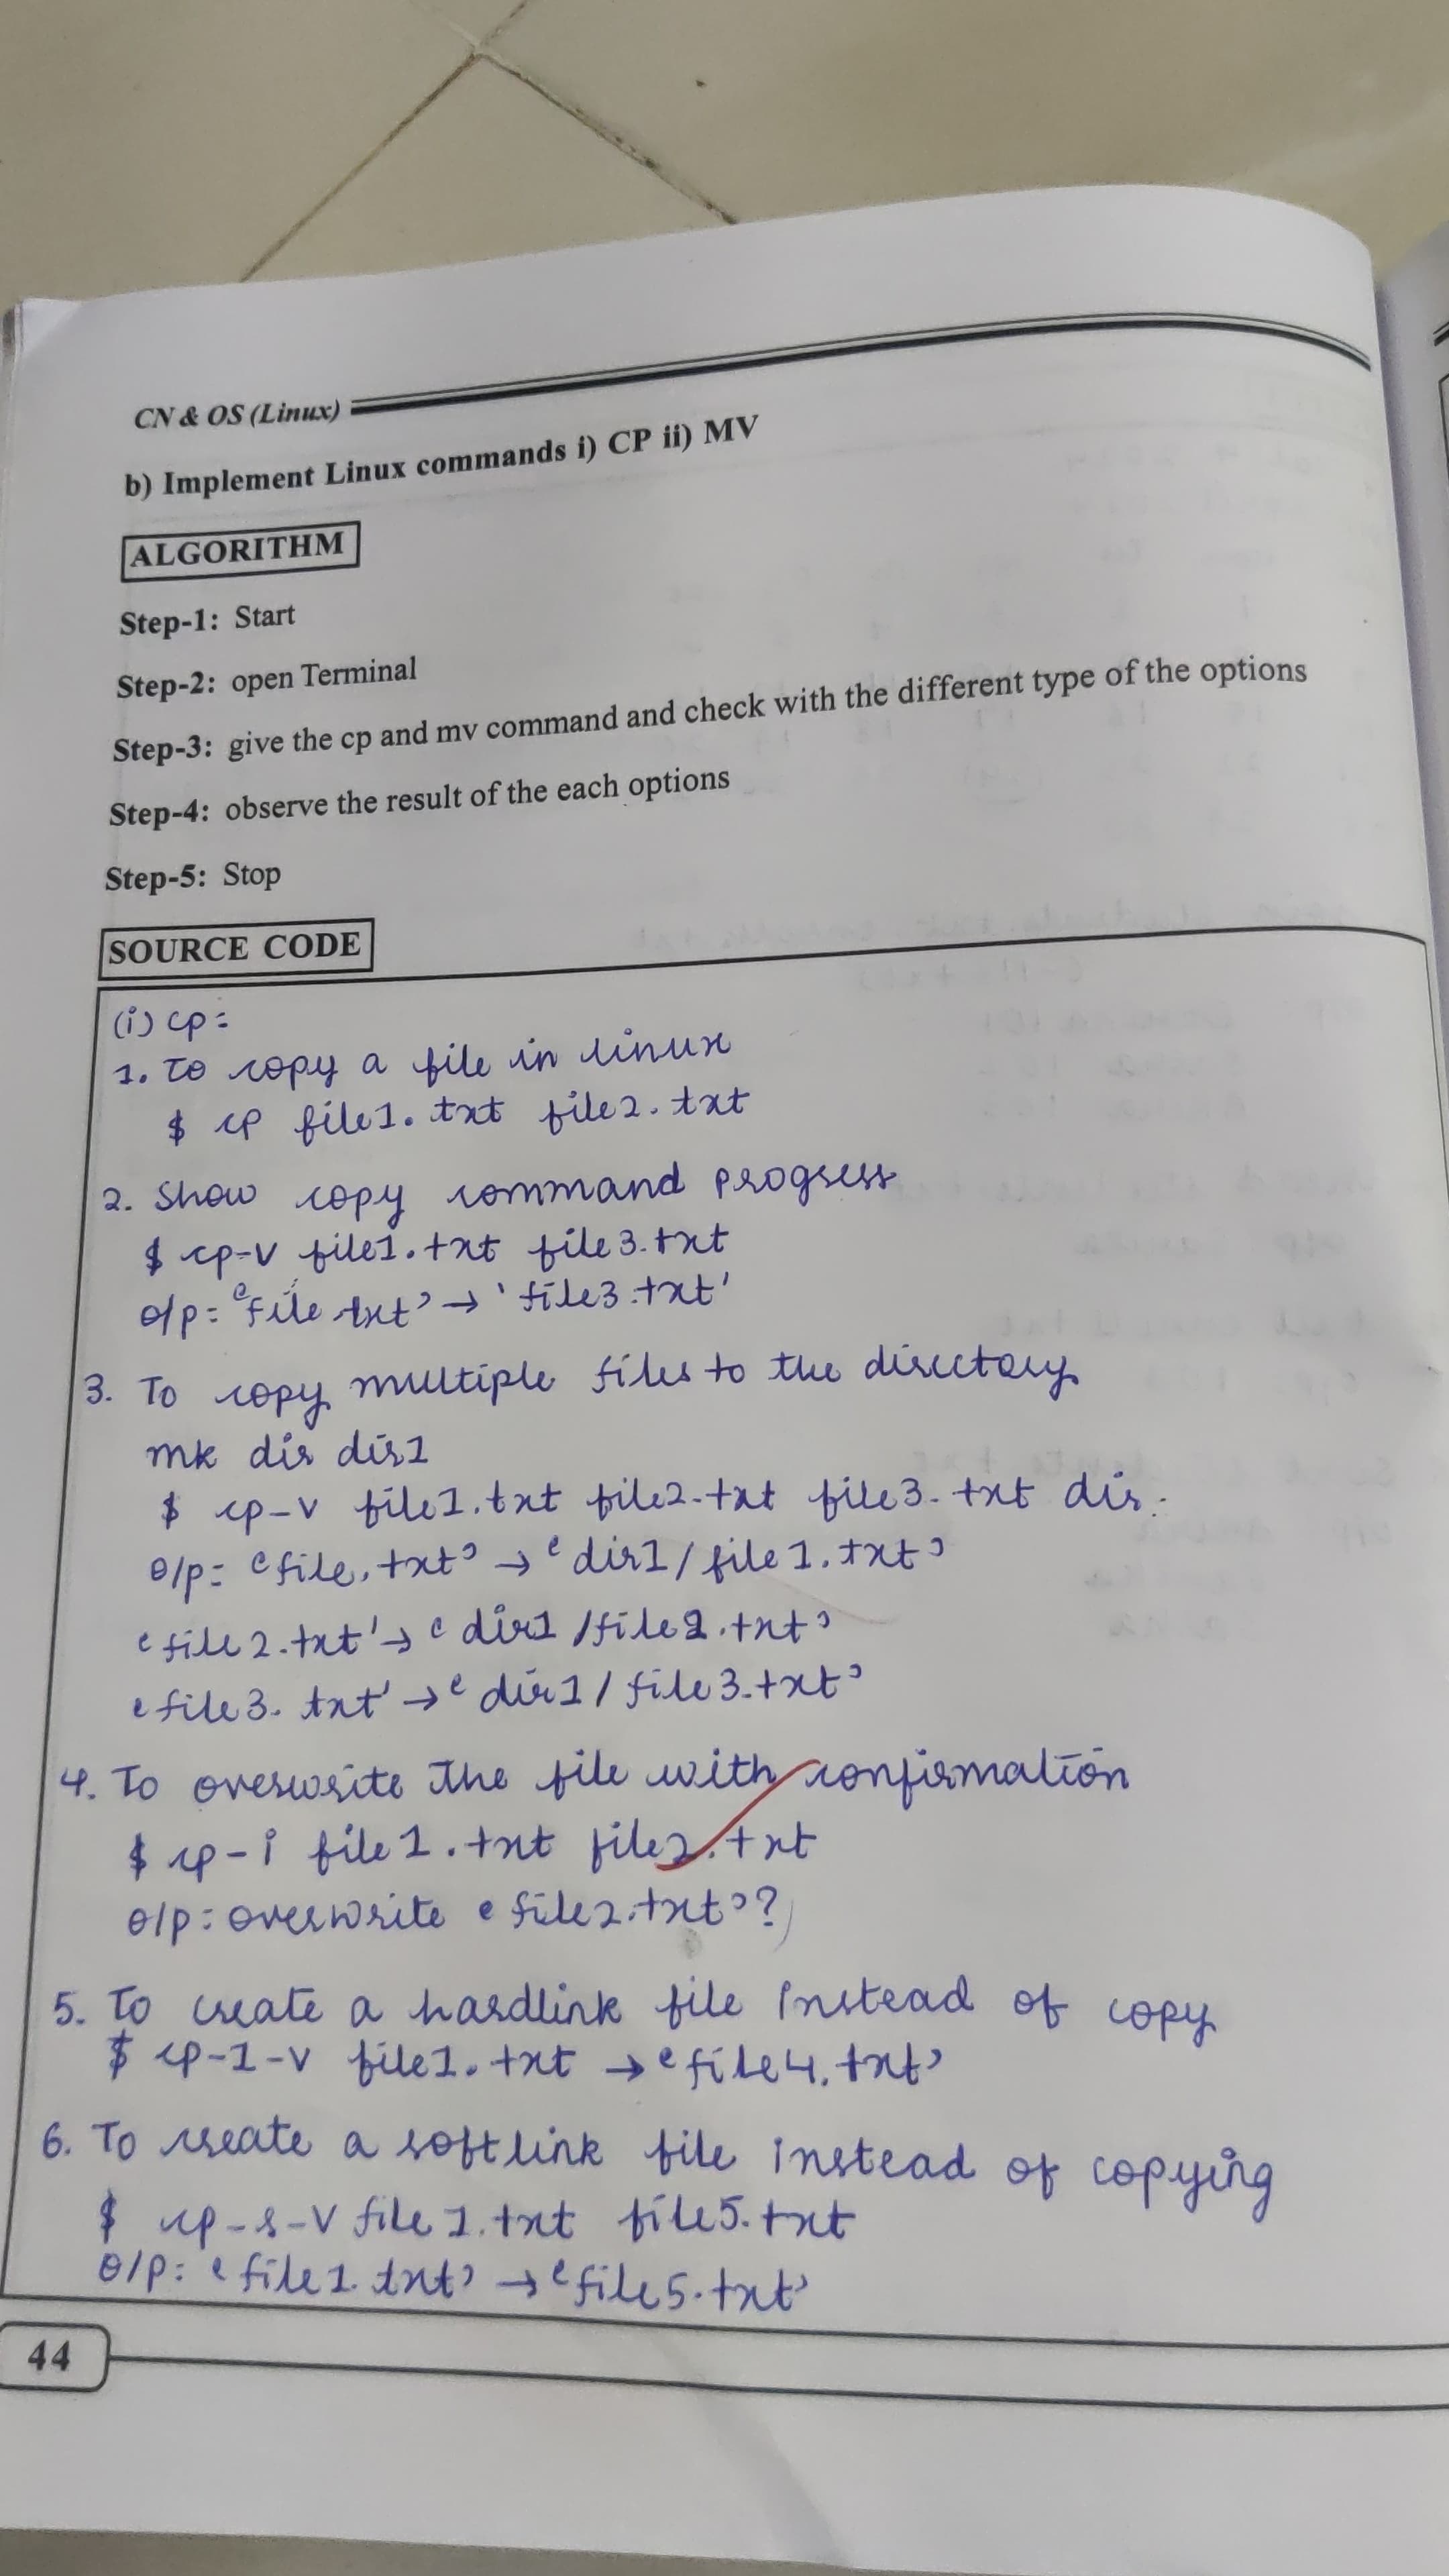 CN & OS (Linux)
b) Implement Linux commands i) CP ii) MV
ALGORITHM
Step-1: Start
Step-2: open Terminal
Step-3: give the cp and mv command and check with the different type of the options
Step-4: observe the result of the each options
Step-5: Stop
SOURCE CODE
(i) cp:
1. To copy a file in linux
$ cp file1.txt file2.txt
2. Show copy command progress
$ cp-v file1.txt file3.txt
o/p= 'file.txt' → 'file3.txt'
3. To copy multiple files to the directory
mk dir dir1
$ cp-v file1.txt file2.txt file3.txt dir.
o/p= 'file.txt' → 'dir1/file1.txt'
'file2.txt' → 'dir1/file2.txt'
'file3.txt' → 'dir1/file3.txt'
4. To overwrite the file with confirmation
$ cp-i file1.txt file2.txt
o/p: overwrite 'file2.txt'?
5. To create a hardlink file instead of copy
$ cp-1-v file1.txt → 'file4.txt'
6. To create a softlink file instead of copying
$ cp-s-v file1.txt file5.txt
o/p: 'file1.txt' → 'file5.txt'
44